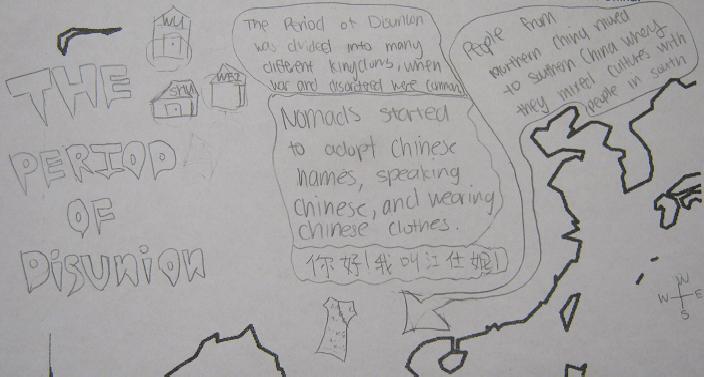 THE
PERIOD
OF
DISUNION
WU
SHU
WEI
The Period of Disunion
was divided into many
different kingdoms, when
war and disordered were common
Nomads started
to adopt Chinese
names, speaking
Chinese, and wearing
Chinese clothes.
你好!我叫江仕妮!
People from
northern China mixed
to southern China where
they mixed cultures with
people in south
N
W E
S